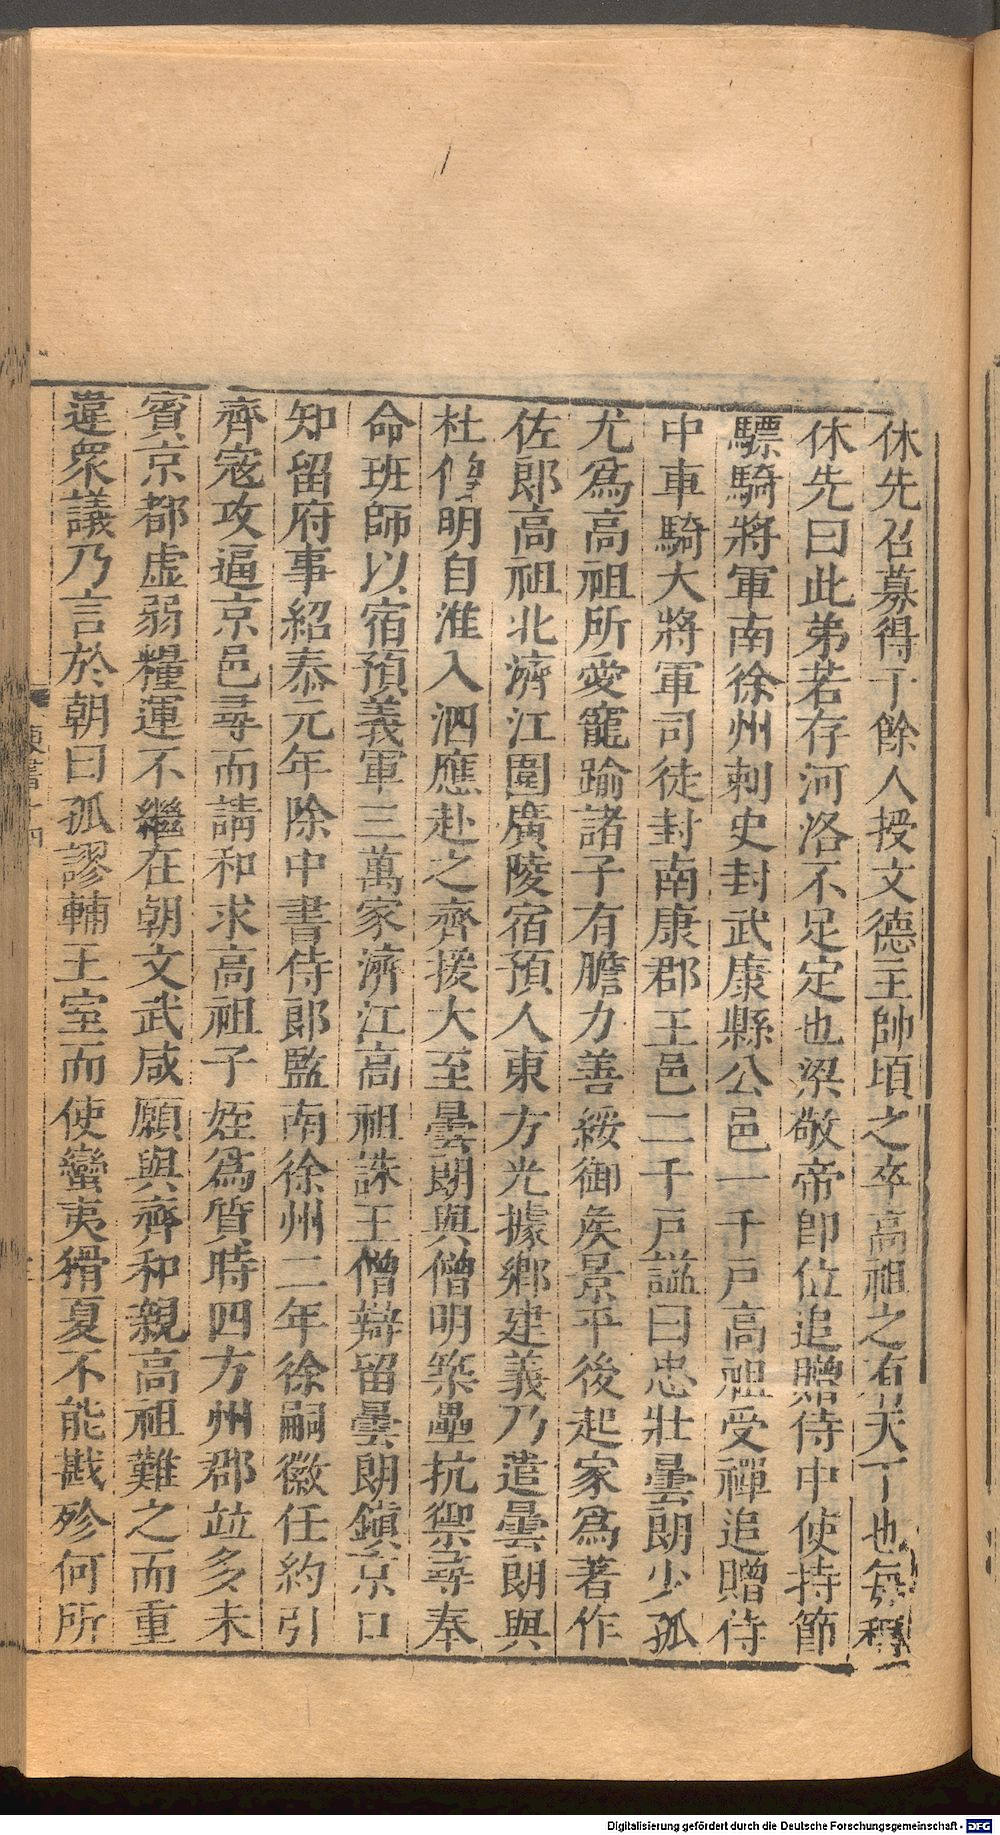 休先召募得千餘人授文德主帥頃之卒高祖之有天下也每稱
休先曰此弟若存河洛不足定也梁敬帝即位追贈侍中使持節
驃騎將軍南徐州刺史封武康縣公邑一千戸高祖受禪追贈侍
中車騎大將軍司徒封南康郡王邑二千戸諡曰忠壯曇朗少孤
尤爲高祖所愛寵踰諸子有膽力善綏御矦景平後起家爲著作
佐郎高祖北濟江圍廣陵宿預人東方光據鄉建義乃遣曇朗與
杜僧明自淮入泗應赴之齊援大至曇朗與僧明築壘抗禦尋奉
命班師以宿預義軍三萬家濟江高祖誅王僧辯留曇朗鎮京口
知留府事紹泰元年除中書侍郎監南徐州二年徐嗣徽任約引
齊寇攻逼京邑尋而請和求高祖子姪爲質時四方州郡竝多未
賓京都虛弱糧運不繼在朝文武咸願與齊和親高祖難之而重
違衆議乃言於朝曰孤謬輔王室而使蠻夷猾夏不能戡殄何所
Digitalisierung gefördert durch die Deutsche Forschungsgemeinschaft - DFG